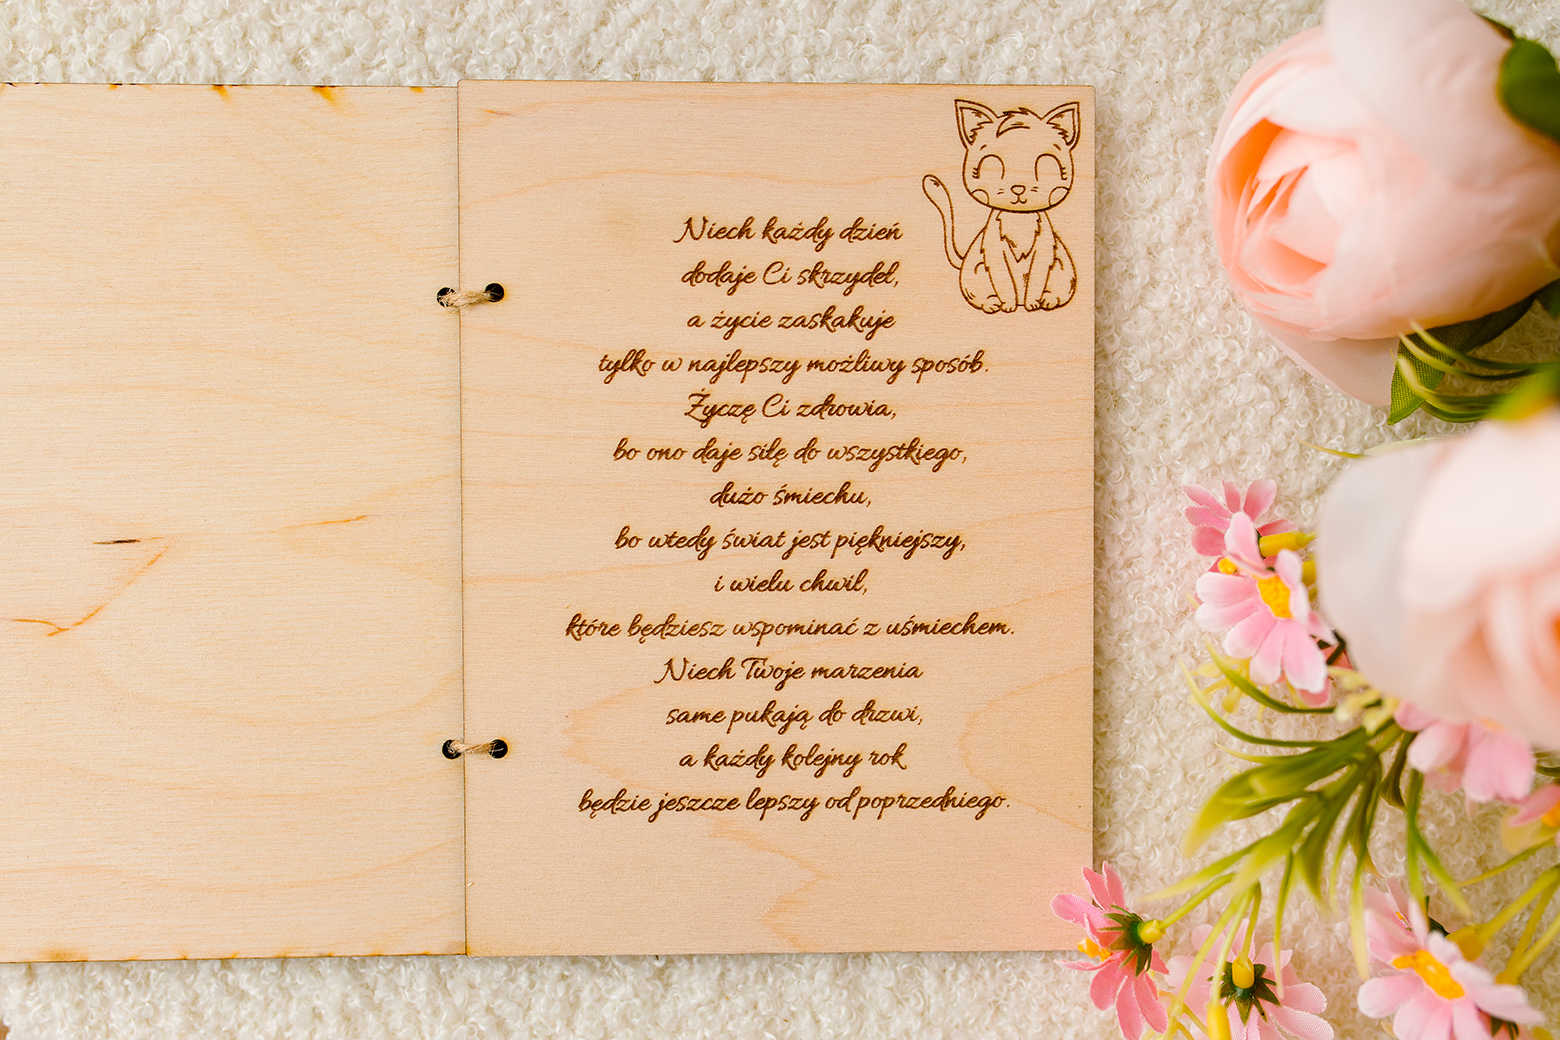 Niech każdy dzień
dodaje Ci skrzydeł,
a życie zaskakuje
tylko w najlepszy możliwy sposób.
Życzę Ci zdrowia,
bo ono daje siłę do wszystkiego,
dużo śmiechu,
bo wtedy świat jest piękniejszy,
i wielu chwil,
które będziesz wspominać z uśmiechem.
Niech Twoje marzenia
same pukają do drzwi,
a każdy kolejny rok
będzie jeszcze lepszy od poprzedniego.